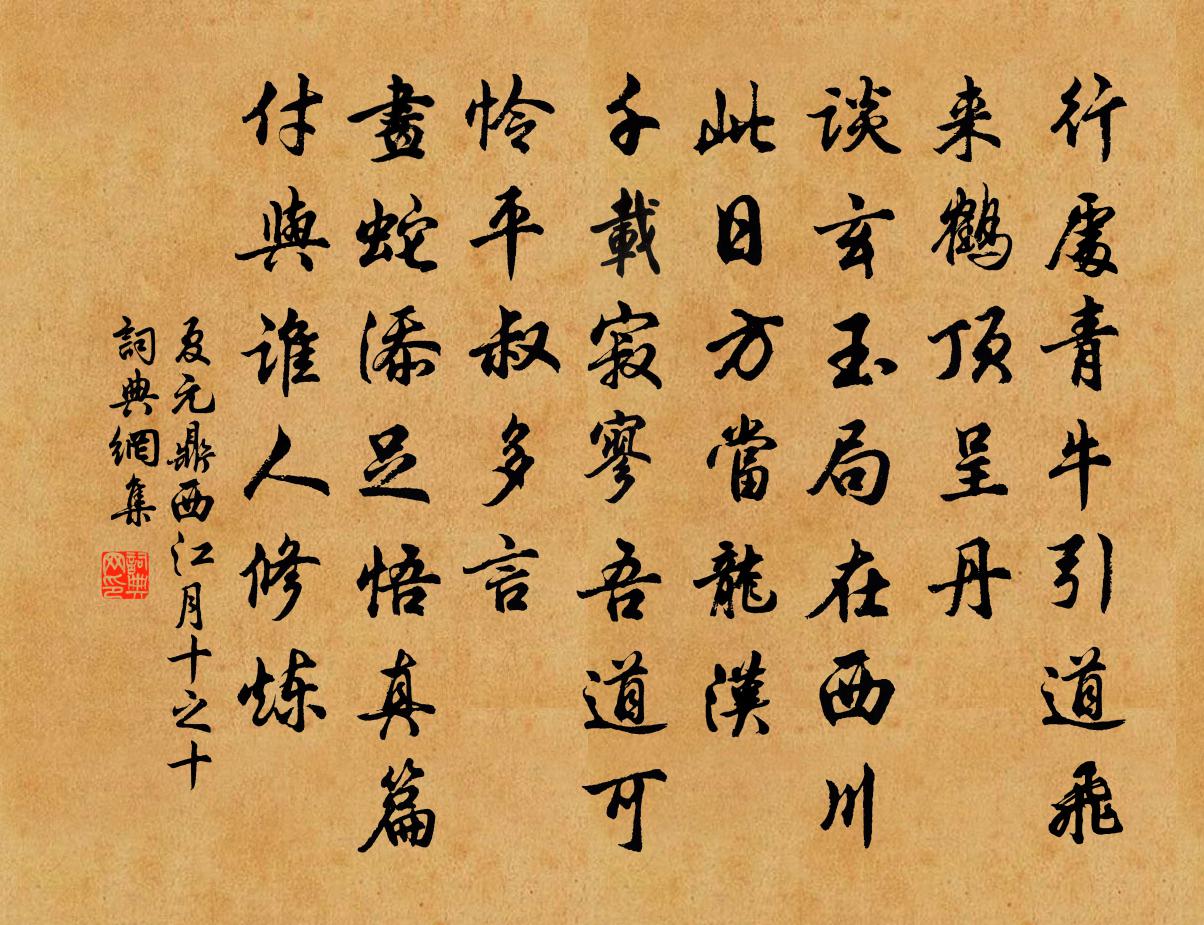 行處青牛引道飛
来鶴顶呈丹
谈玄玉局在西川
此日方當龍漢
千載寂寥吾道可
怜平叔多言
畫蛇添足悟真篇
付與誰人修炼
夏元鼎西江月十之十
詞典網集
詞典网印